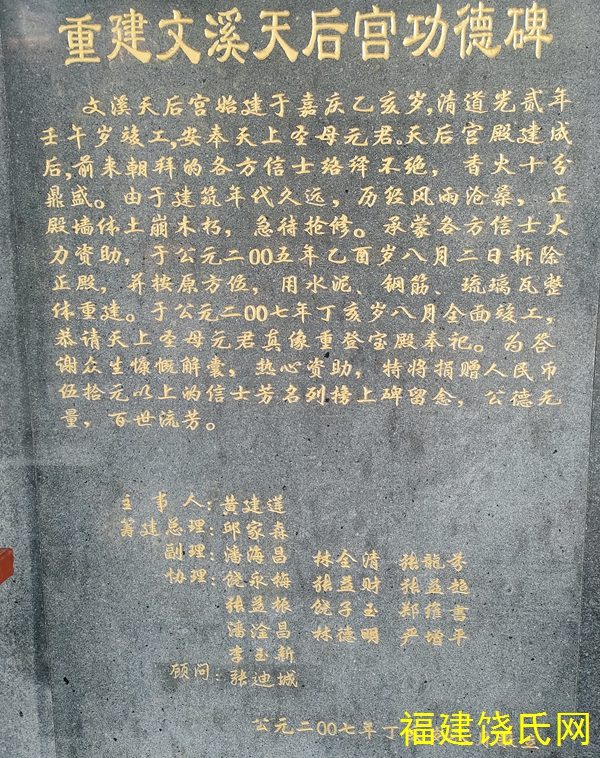 重建文溪天后宫功德碑
文溪天后宫始建于嘉庆乙亥岁,清道光贰年
壬午岁竣工,安奉天上圣母元君。天后宫殿建成
后,前来朝拜的各方信士络绎不绝，香火十分
鼎盛。由于建筑年代久远，历经风雨沧桑，正
殿墙体土崩木朽，急待抢修。承蒙各方信士大
力资助，于公元二00五年乙酉岁八月二日拆除
正殿，并按原方位，用水泥、钢筋、琉璃瓦整
体重建。于公元二00七年丁亥岁八月全面竣工，
恭请天上圣母元君真像重登宝殿奉祀。为答
谢众生慷慨解囊，热心资助，特将捐赠人民币
伍拾元以上的信士芳名列榜上碑留念，公德无
量，百世流芳。
主事人:黄建莲
筹建总理:邱家森
副理:潘海昌 林全清 张龍芬
协理:饶永梅 张益财 张益超
张益振 饶子玉 郑维書
潘淦昌 林德明 严增平
李玉新
顾问:张迪城
公元二00七年丁
福建饶氏网